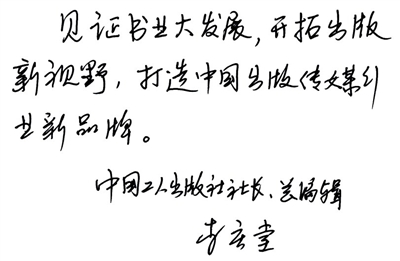 见证书业大发展,开拓出版
新视野,打造中国出版传媒行
业新品牌。
中国工人出版社社长、总编辑
李庆堂